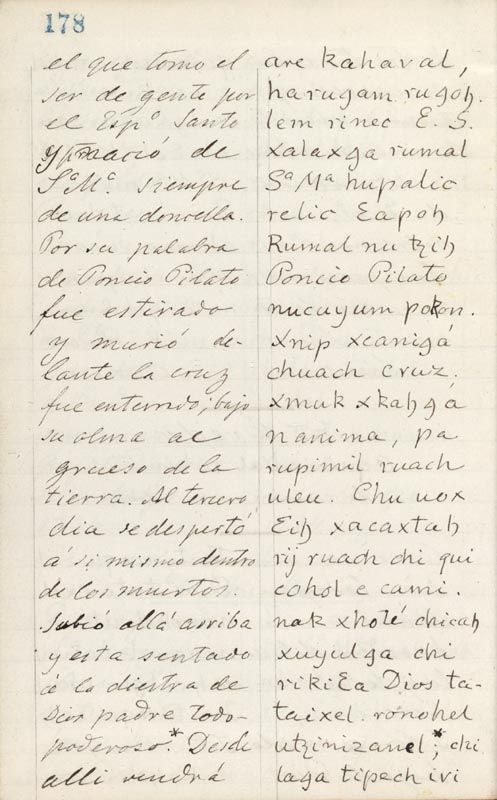 178
el que tomo el
ser de gente por
el Esp.º Santo
y nació de
S.ª M.ª siempre
de una doncella.
Por su palabra
de Poncio Pilato
fue estirado
y murió de-
lante la cruz
fue enterrado; bajo
su alma al
grueso de la
tierra. Al tercero
dia se despertó
á si mismo dentro
de los muertos.
Subió allá arriba
y esta sentado
á la diestra de
Dios padre todo-
poderoso.* Desde
alli vendrá
are kahaval,
harugam rugoꜧ.
lem rinec E. S.
xalaxga rumal
Sª Mª hupalic
relic Eapoꜧ
Rumal nu tziꜧ
Poncio Pilato
nucuyum pokon.
Xnip xcanigá
chuach cruz.
xmuk xkaꜧgá
nanima, pa
rupimil ruach
uleu. Chu uox
Eiꜧ xacaxtaꜧ
rij ruach chi qui
cohol e cami.
nak xholé chicaꜧ
xuyulga chi
rikiEa Dios ta-
taixel. ronohel
utzinizanel*; chi
laga tipech ivi